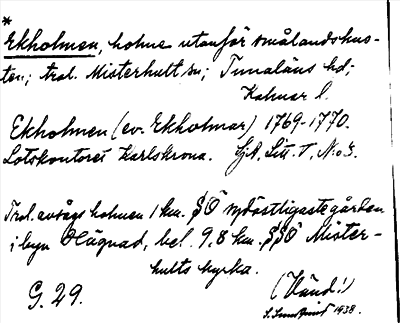 *
Ekholmen, holme utanför smålandskus-
ten; trol. Misterhults sn; Tunaläns hd;
Kalmar l.
Ekholmen (ev. Ekholmar) 1769-1770.
Lotskontoret Karlskrona. Sjö. Litt. T, N:o 3.
Trol. avses holmen 1 km. SÖ sydöstligaste gården
i byn Glügnad, bel. 9,8 km. SSÖ Mister-
hults kyrka.
G. 29.
(Vänd!)
1938.